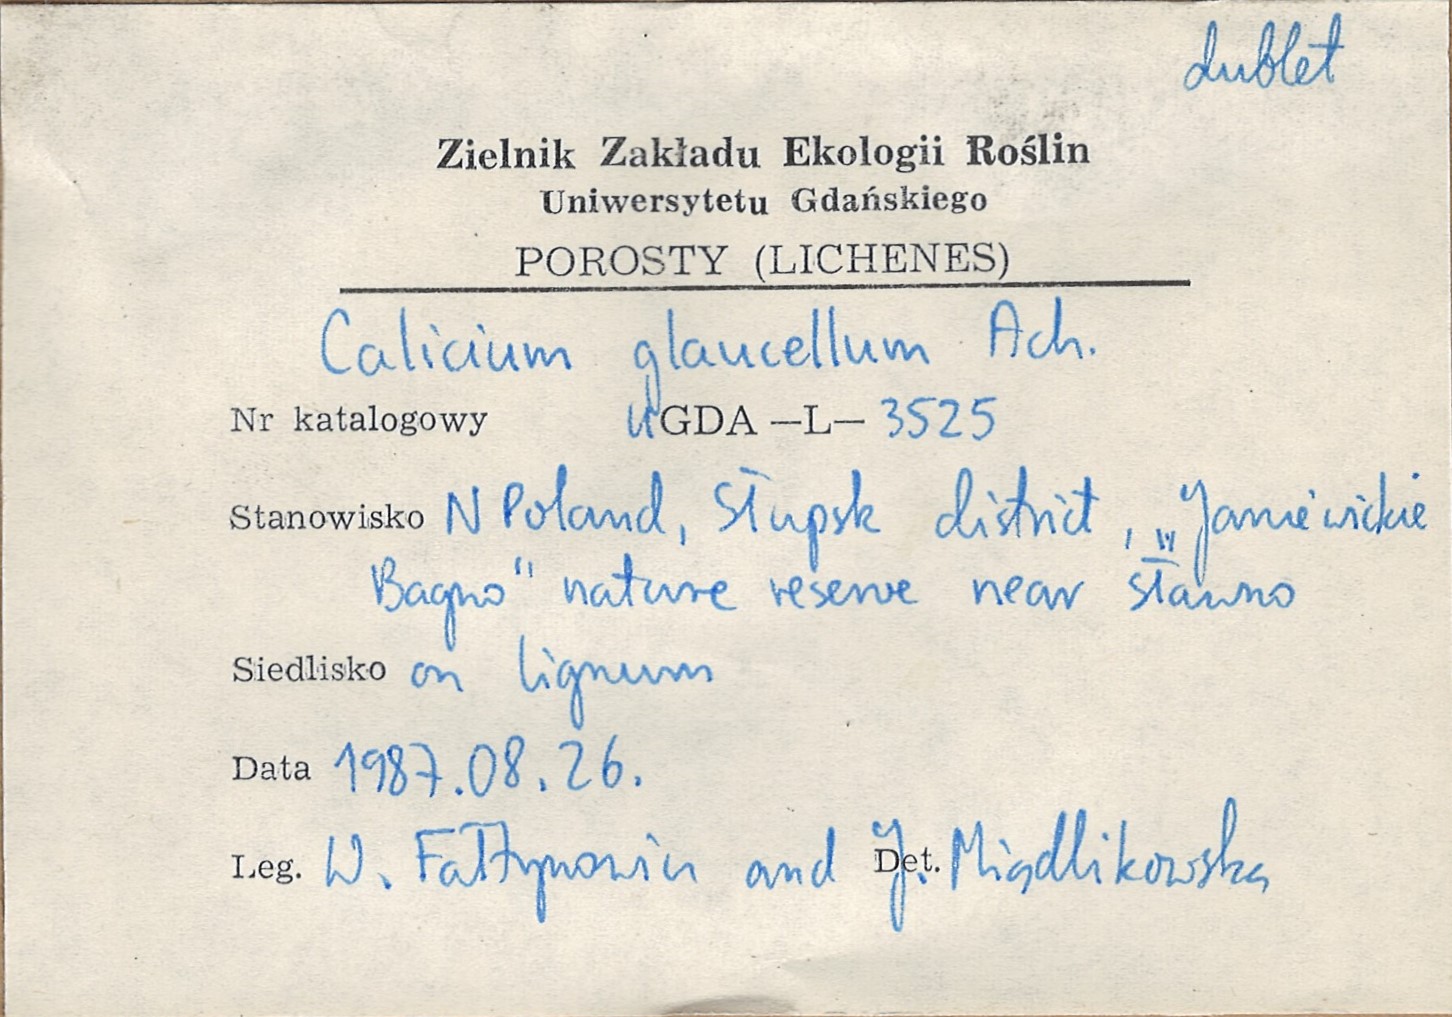 dublet
Zielnik Zakładu Ekologii Roślin
Uniwersytetu Gdańskiego
POROSTY (LICHENES)
Calicium glaucellum Ach.
Nr katalogowy UGDA —L— 3525
Stanowisko N Poland, Słupsk district, „Janiewickie
Bagno" nature reserve near Sławno
Siedlisko on lignum
Data 1987.08.26.
Leg. W. Fałtynowicz and Det. J. Miądlikowska